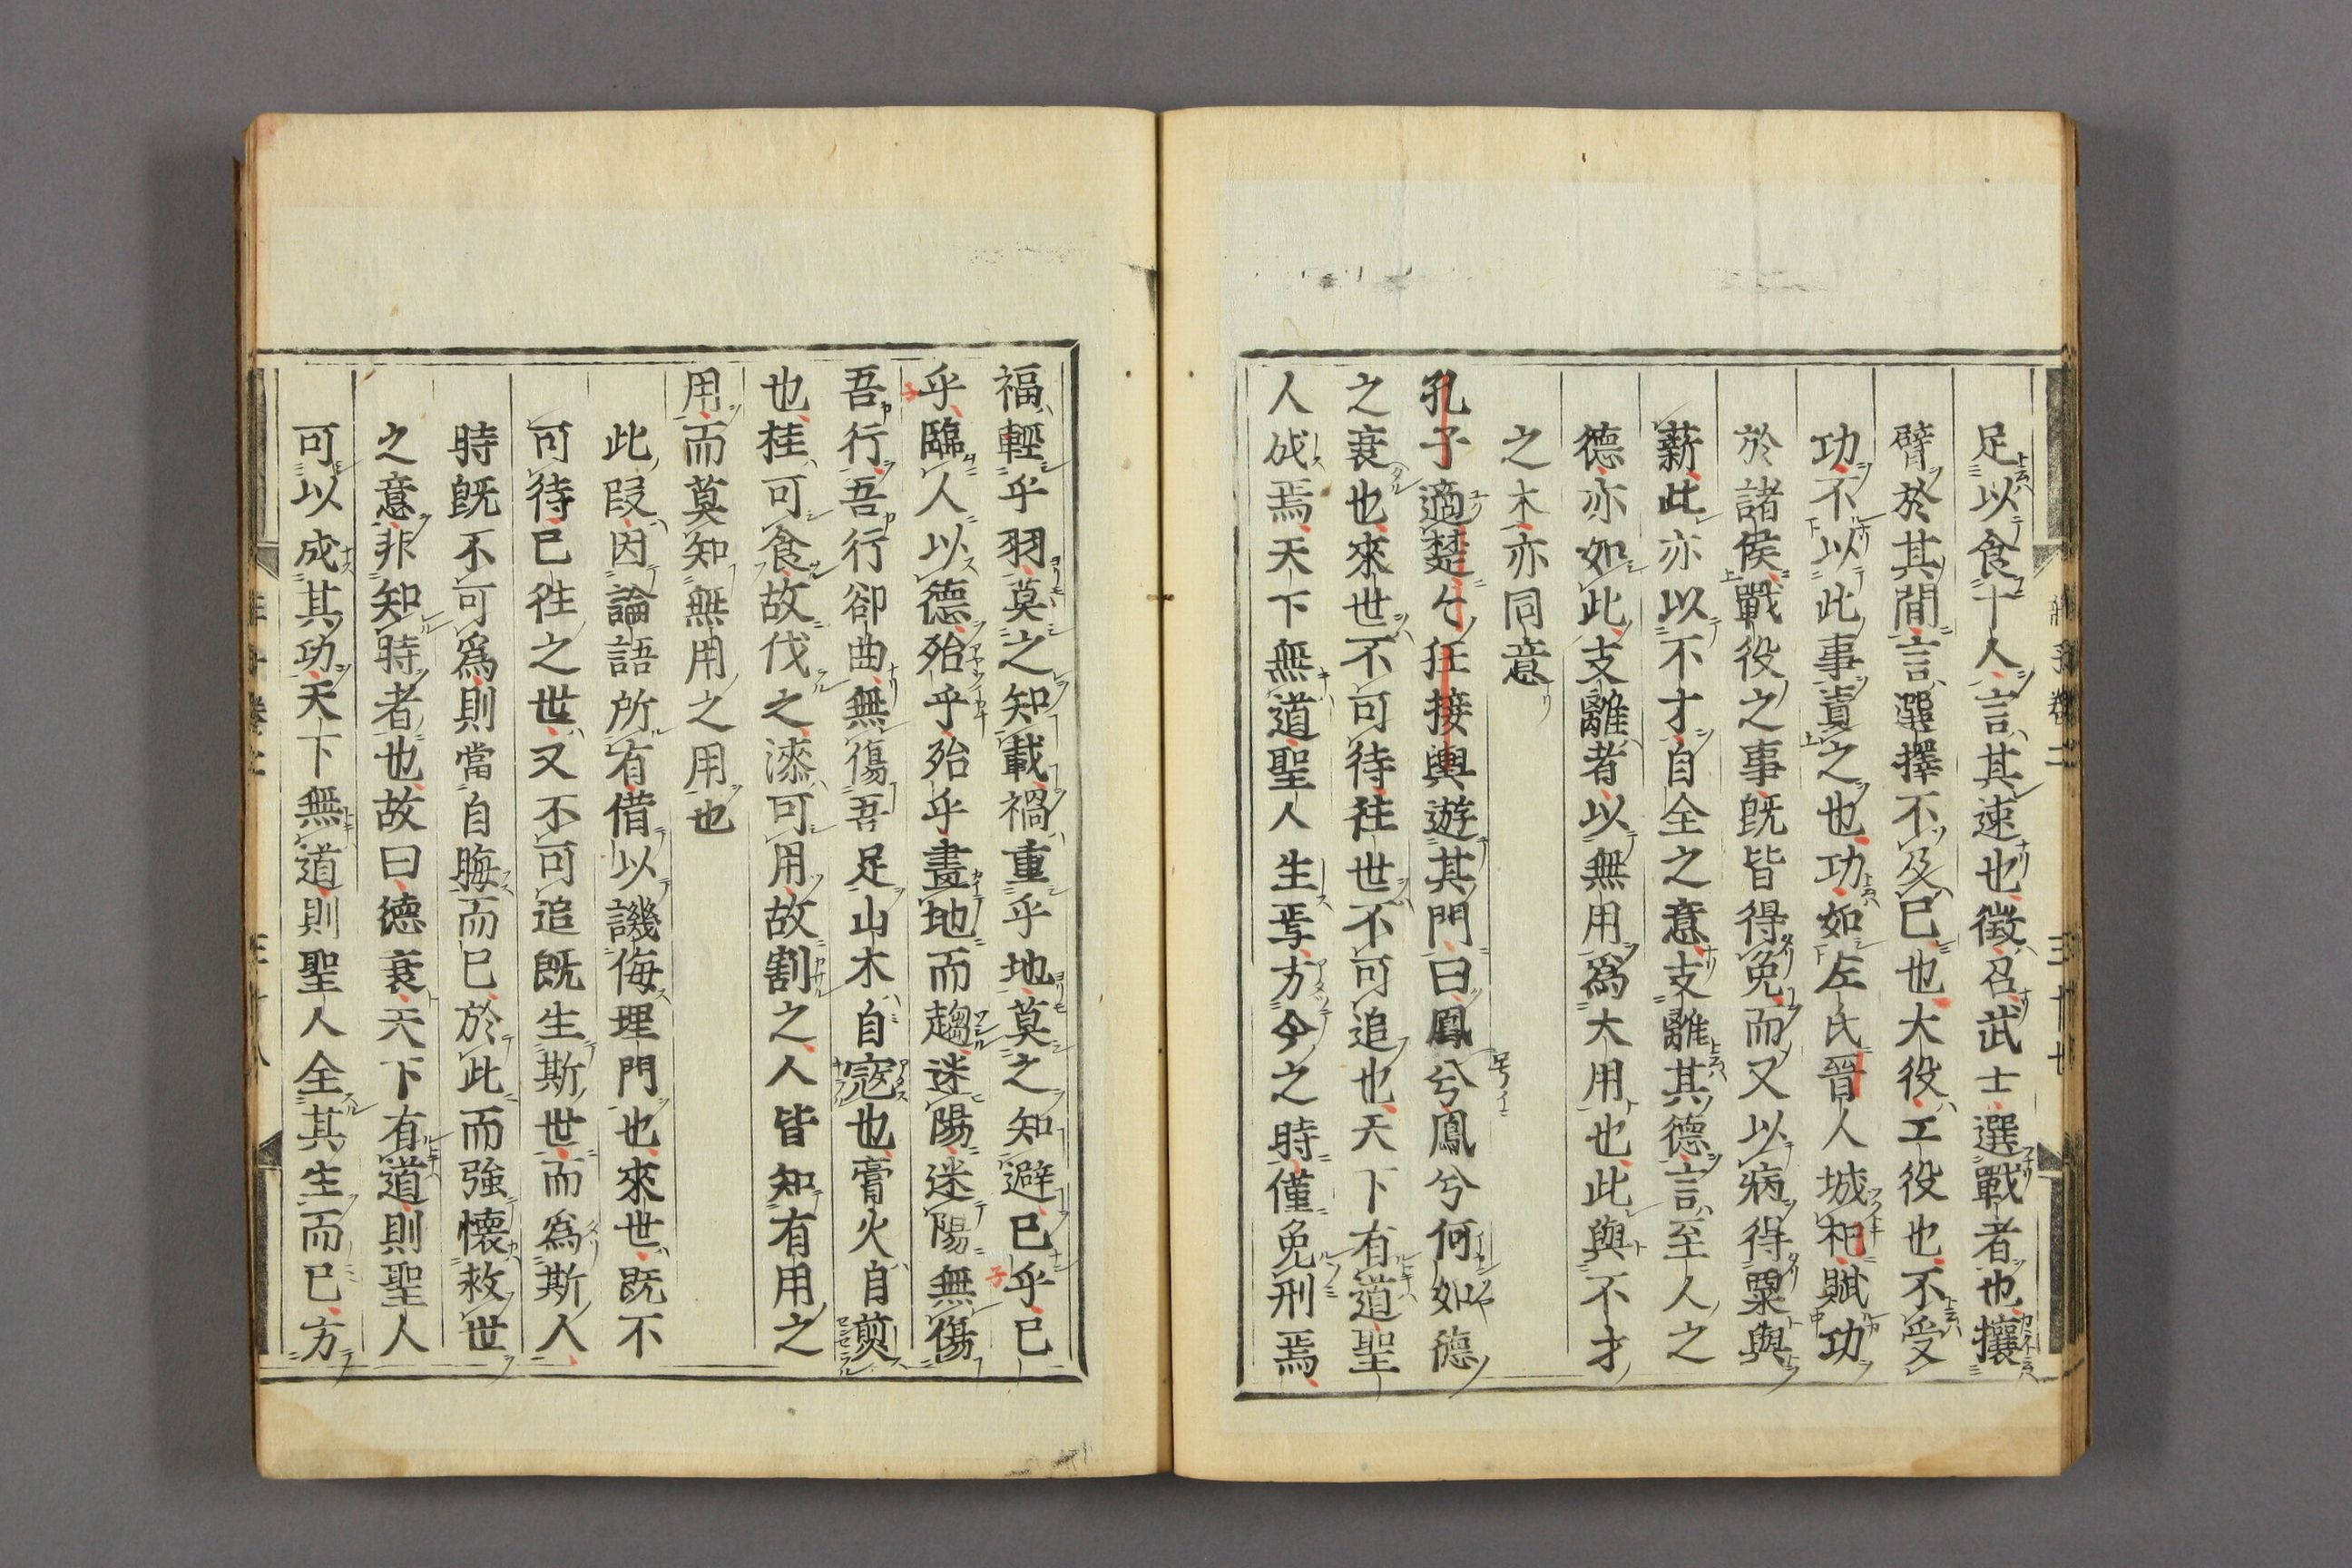 足以食十人言其速也徵召武士選戰者也攘
臂於其間言選擇不及已也大役工役也不受
功不以此事責之也功如左氏晉人城杞賦功
於諸侯戰役之事既皆得免而又以病得粟與
薪此亦以不才自全之意支離其德言至人之
德亦如此支離者以無用爲大用也此與不才
之木亦同意
孔子適楚楚狂接輿遊其門曰鳳兮鳳兮何如德
之衰也來世不可待徃世不可追也天下有道聖
人成焉天下無道聖人生焉方今之時僅免刑焉
福輕乎羽莫之知載禍重乎地莫之知避已乎已
乎臨人以德殆乎殆乎畫地而趨迷陽迷陽無傷
吾行吾行卻曲無傷吾足山木自寇也膏火自煎
也桂可食故伐之漆可用故割之人皆知有用之
用而莫知無用之用也
此叚因論語所有借以譏侮理門也來世既不
可待已徃之世又不可追既生斯世而爲斯人
時既不可爲則當自晦而已於此而強懷救世
之意非知時者也故曰德衰天下有道則聖人
可以成其功天下無道則聖人全其生而已方